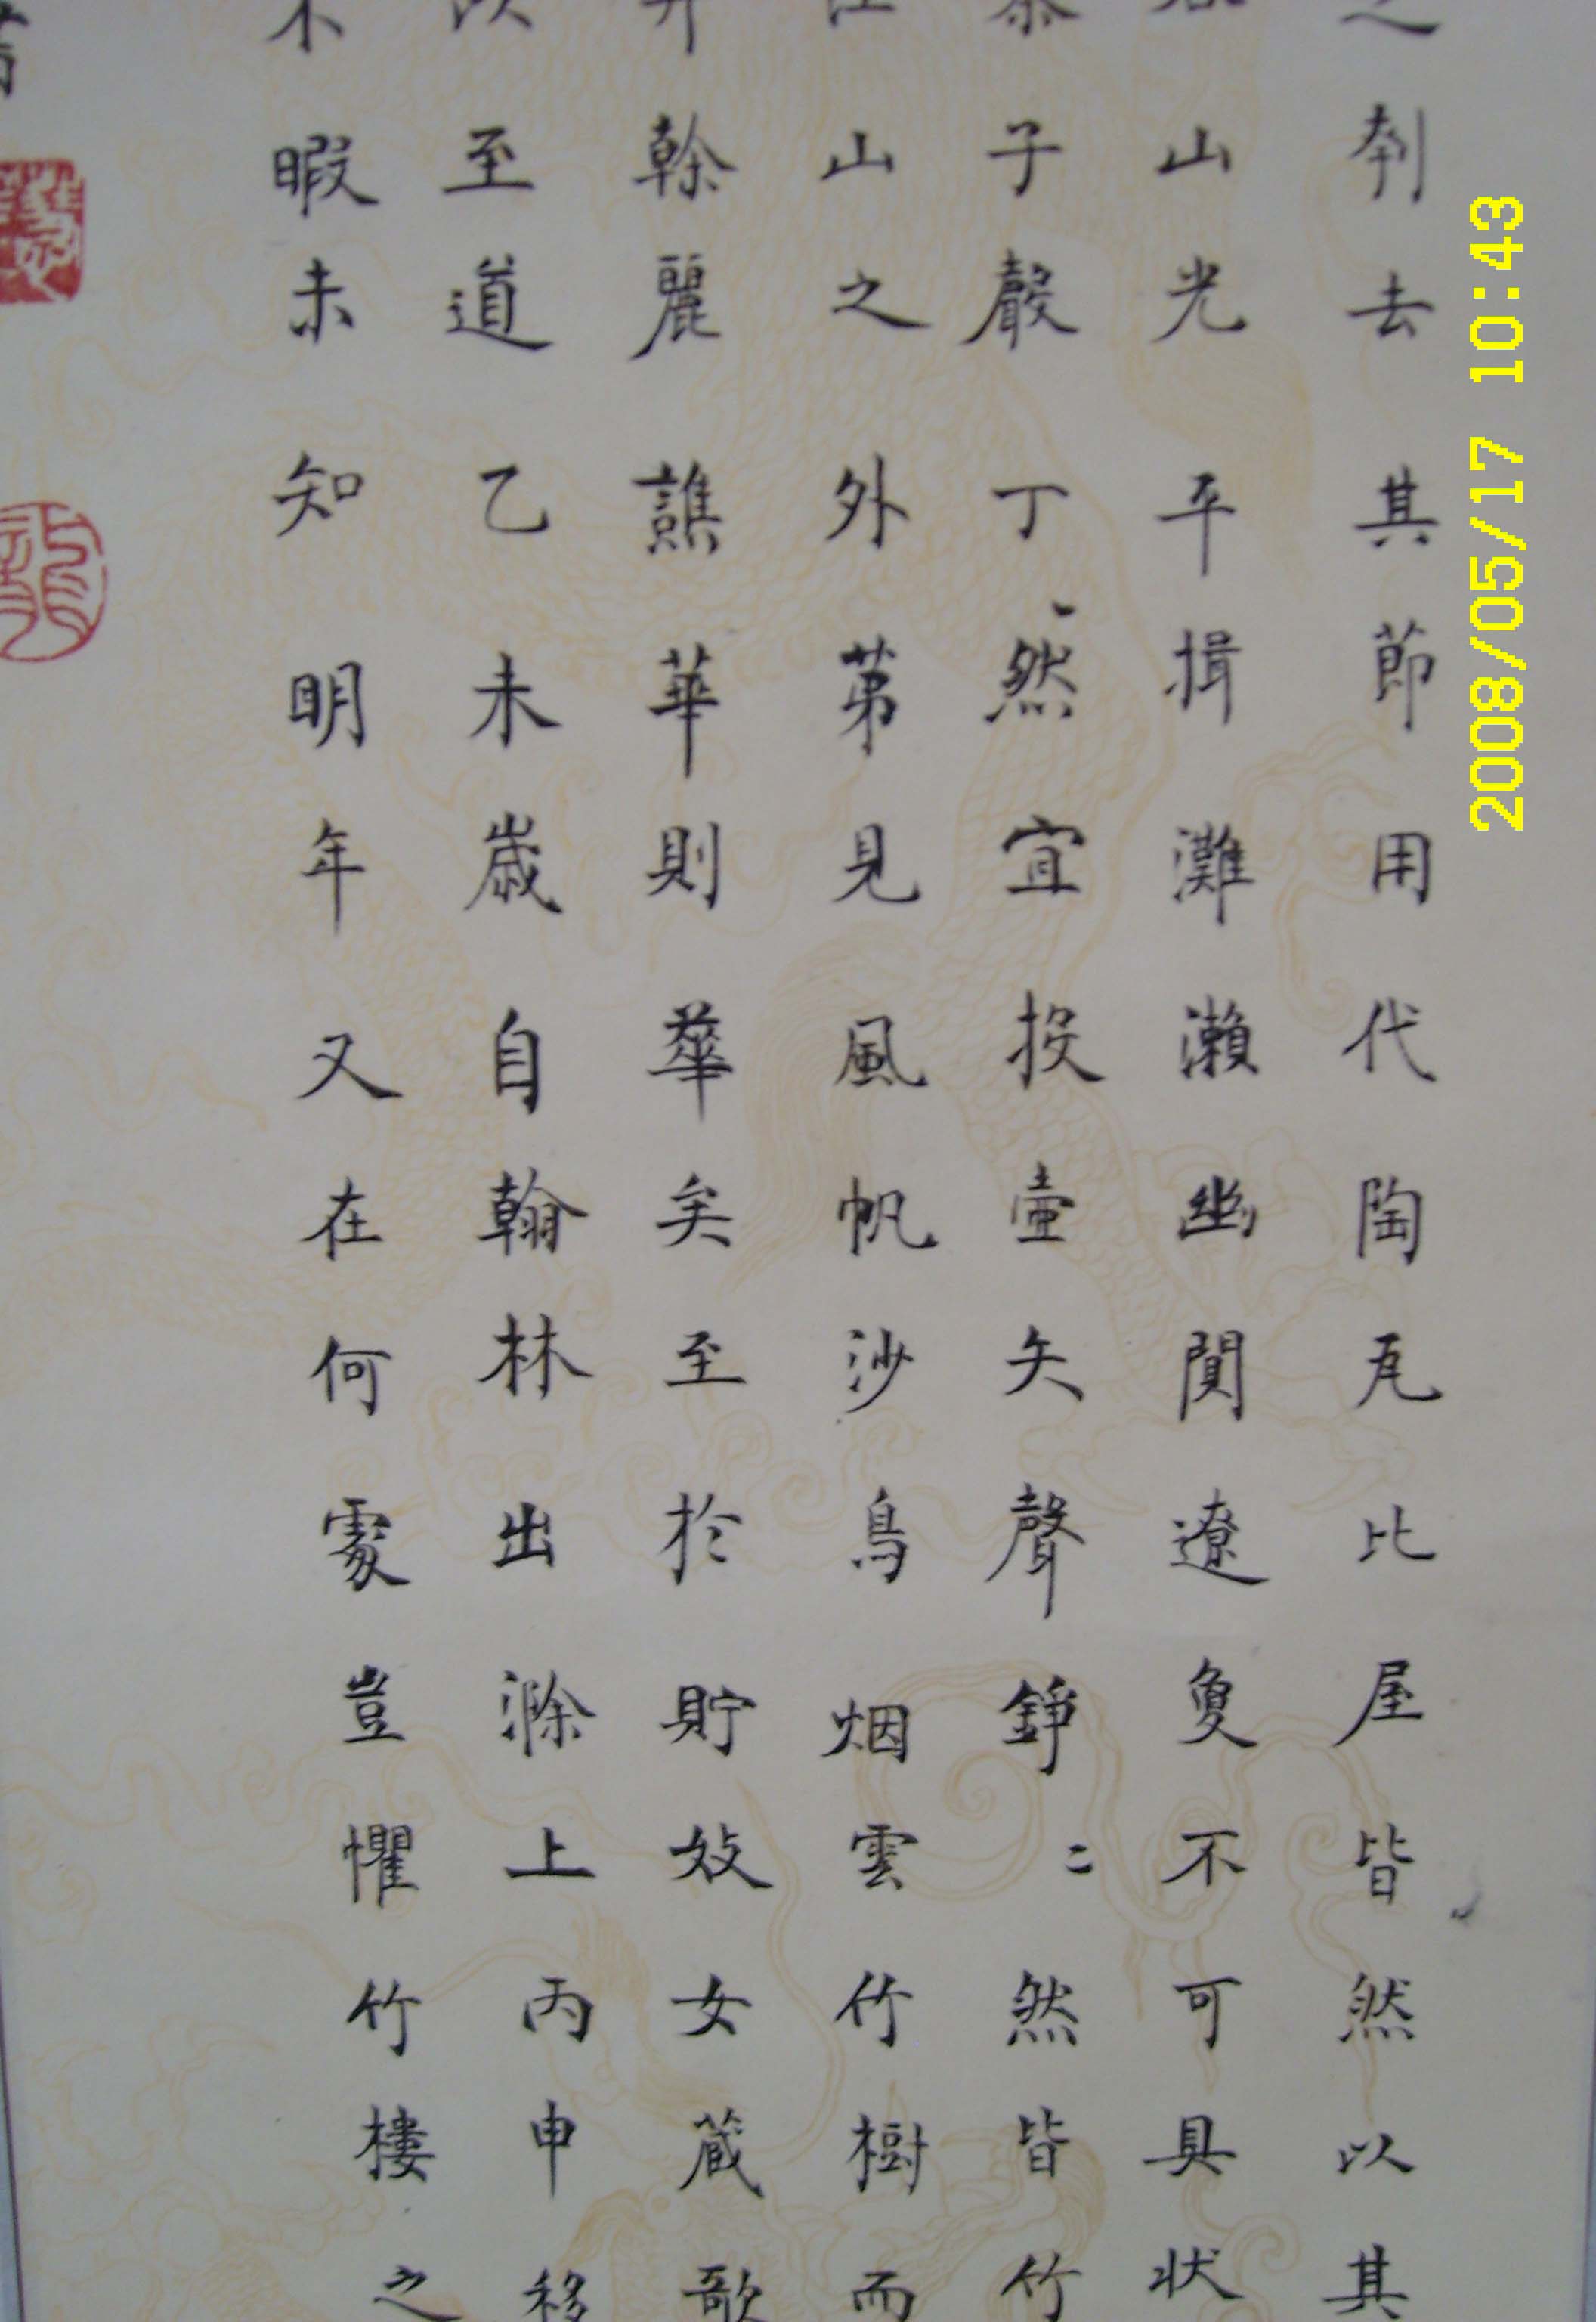 之刳去其節用代陶瓦比屋皆然以其
山光平揖灘瀨幽闃遼夐不可具狀
子聲丁丶然宜投壺矢聲錚〻然皆竹
山之外苐見風帆沙鳥烟雲竹樹而
井榦麗譙華則華矣至於貯妓女蔵歌
以至道乙未歲自翰林出滁上丙申移
不暇未知明年又在何處豈懼竹樓之
2008/05/17 10:43